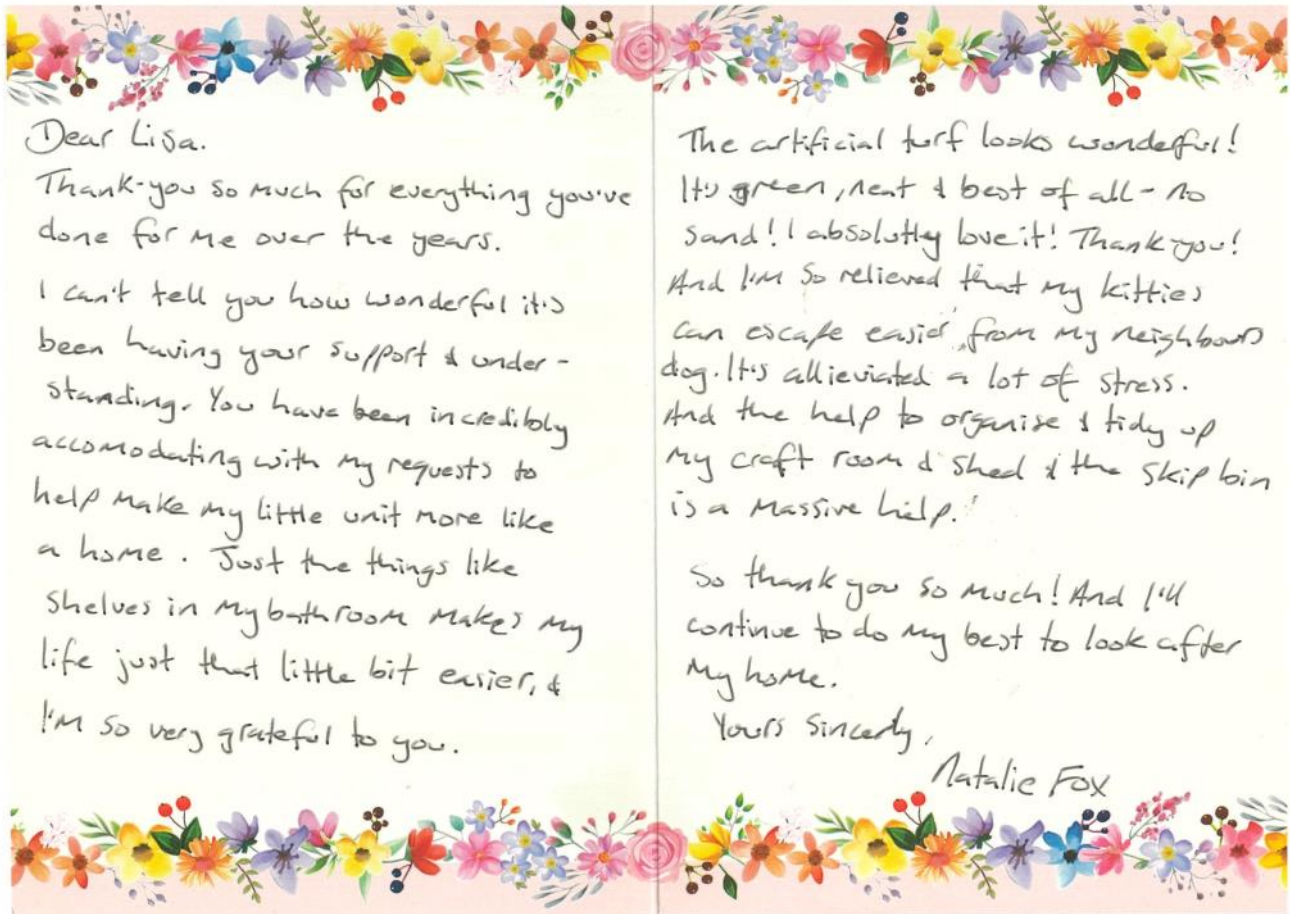 Dear Lisa.
Thank-you so much for everything you've
done for me over the years.
I can't tell you how wonderful it's
been having your support & under-
standing. You have been incredibly
accomodating with my requests to
help make my little unit more like
a home. Just the things like
shelves in my bathroom makes my
life just that little bit easier, &
I'm so very grateful to you.
The artificial turf looks wonderful!
It's green, neat & best of all - no
sand! I absolutly love it! Thank-you!
And I'm so relieved that my kitties
can escape easier from my neighbours
dog. It's allieviated a lot of stress.
And the help to organise & tidy up
my craft room & shed & the skip bin
is a massive help!
So thank you so much! And I'll
continue to do my best to look after
my home.
Yours sincerly,
Natalie Fox